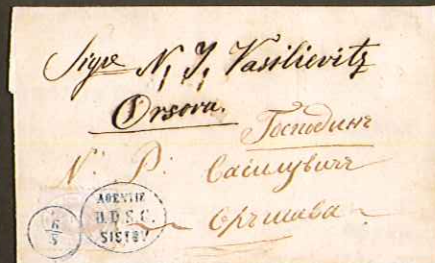 Sigre N. J. Vasilievitz
Orsova.
Господинъ
N: P: Василувичъ
Оршава
AGENTIE
D.D.S.G.
SISTOV
6/8